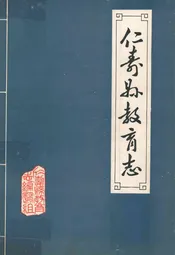 仁寿县教育志